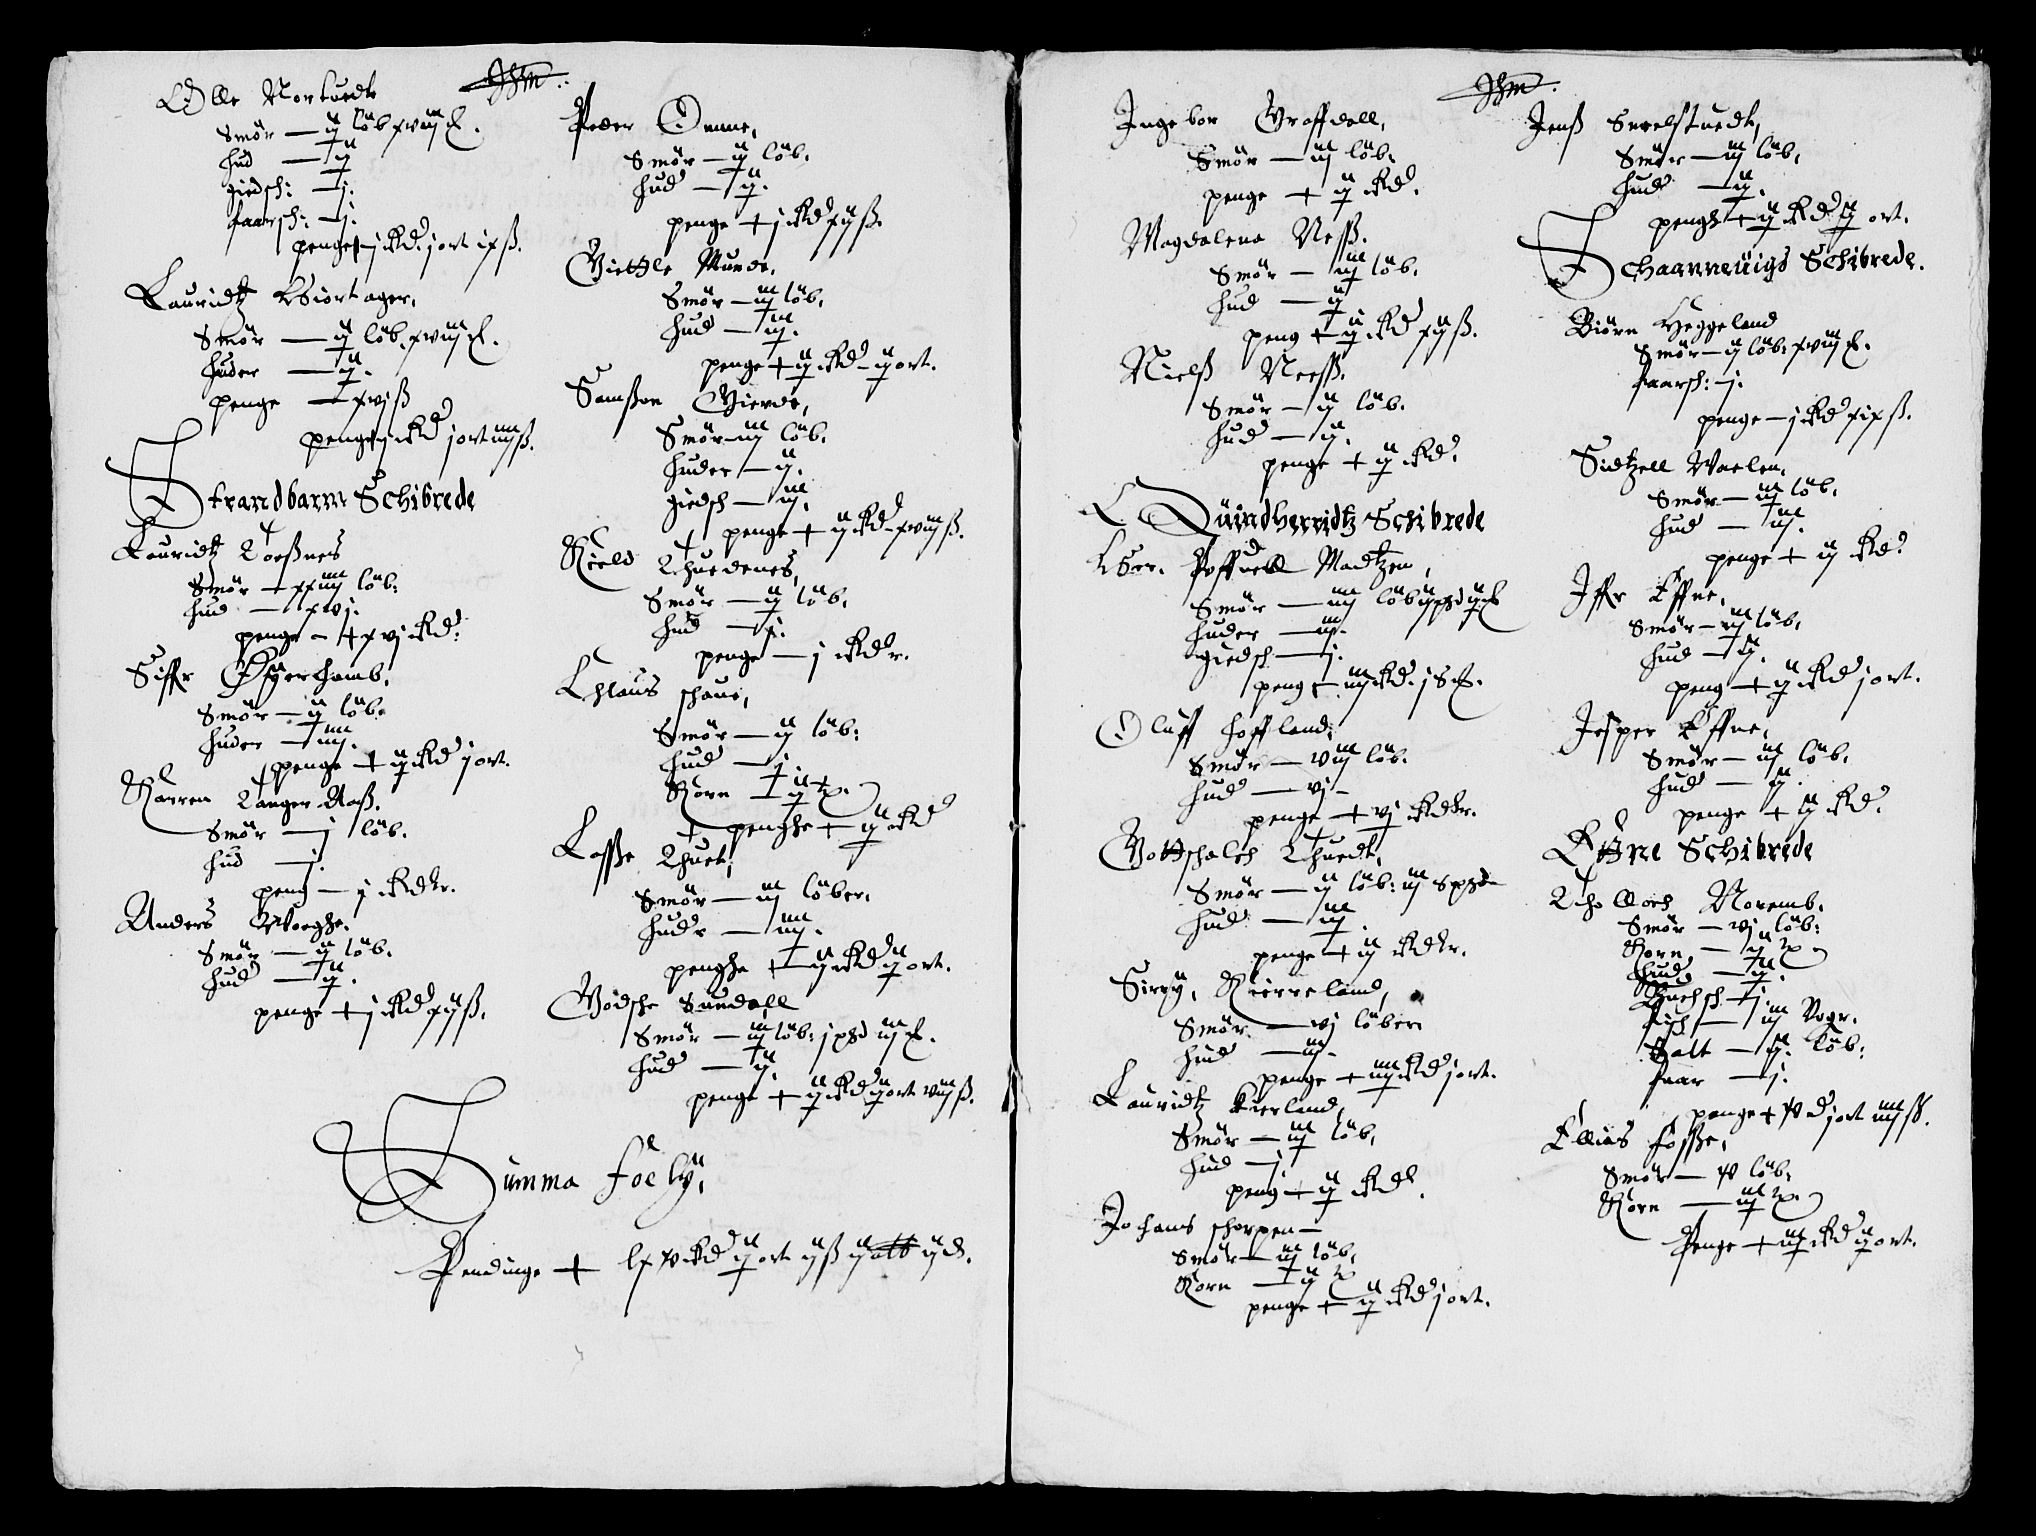 Olle Nortuedt
Smör — ij löb xviij
hud — ij
giedsch: — j.
faarsch: — j.
penge — j Rd. j ort ix ß.
Lauridtz
Smör — ij löb. xviij
huder — ij.
penge — xvj ß
penge j Rd j ort iiij ß.
Strandbarm Schibrede
Lauridtz Toeßnes
Smör — xxiiij löb:
hud — xvj.
penge — xvj Rd:
Siffr Øyerhamb.
Smör — ij löb.
huder — iiij.
penge — ij Rd j ort.
Karren Tangeraaß.
Smör — j löb.
hud — j.
peng — j Rdr.
Anders
Smör — ij löb.
hud — ij.
penge — j Rd xij ß.
Peder Omme,
Smör — ij löb.
hud — ij.
penge — j Rd xij ß.
Giettle Munde,
Smör — iij löb.
hud — iij.
penge — ij Rd — ij ort.
Samßon Gierde,
Smör — iij löb.
huder — ij.
giedsch — iij.
penge — ij Rd — xviij ß.
Kield Thuedenes,
Smör — ij löb.
hud — j.
penge — j Rdr.
Chlaus schaue,
Smör — ij löb:
hud — j.
Korn — ij
penghe — ij Rd
Lasße Thuet,
Smör — iij löber.
hudr — iiij.
penghe — ij Rd ij ort.
Godsche Sundall
Smör — iij löb: j pd iij
hud — ij.
penge — ij Rd ij ort viij ß.
Summa foelÿ,
Pendinge — lxv Rd ij ort ij ß ij alb ij d.
Ingebor Graffdall,
Smör — iij löb.
penge — ij Rd.
Magdalena Neß.
Smör — iij löb.
hud — ij
peng — ij Rd xij ß.
Nielß Neeß.
Smör — ij löb.
hud — ij.
penge — ij Rd.
Quindherridtz Schibrede
Her. Poffuell Madtzen,
Smör — iiij löb ij pd ij
huder — iij.
giedsch — j.
peng — iiij Rd. j
Oluff hoffland,
Smör — viij löb.
hud — vj —
penge — vj Rdr.
Gottschalch Thuedt,
Smör — ij löb: iij spd
hud — iij.
penge — ij Rdr.
Sirrÿ, Kierreland,
Smör — vj löber
hud — iij.
penge — iiij Rd j ort.
Lauridtz Kierland,
Smör — iij löb,
hud — j.
peng — ij Rd.
Johans schorpen —
Smör — iij löb,
Korn — ij
penge — ij Rd j ort.
Jenß Seelstuedt,
Smör — iij löb,
hud — ij.
pengh — ij Rd ij ort.
Schaanneuigs Schibrede.
Biörn Heggeland
Smör — ij löb: xviij
faarsch: — j.
penge — j Rd xix ß.
Sidtzell Waelen,
Smör — iij löb.
hud — iij.
penge — ij Rd
Iffr Effne,
Smör — iij löb,
hud — ij.
peng — ij Rd j ort.
Jesper Effne,
Smör — iij löb,
hud — ij.
penge — ij Rd.
Etne Schibrede
Thollloch Noremb.
Smör — vj löb:
Korn — ij
hud — ij.
Buchsch — j.
fisch — iij Vogr.
Salt — ij. löb:
faar — j.
penge — v d j ort iiij ß.
Ellias foßße,
Smör — v löb:
Korn — iij
Penge — iij Rd ij ort.